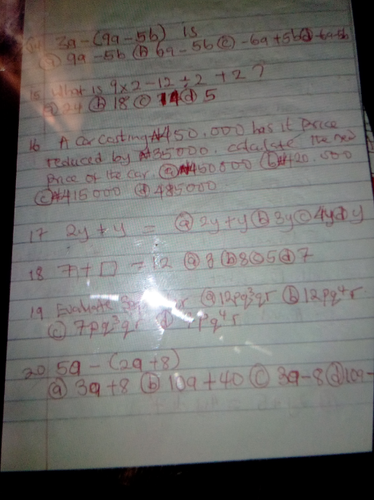 14 3a - (9a - 5b) is
(a) 9a - 5b (b) 6a - 5b (c) -6a + 5b (d) -6a-5b
15 What is 9 x 2 - 12 ÷ 2 + 2 ?
(a) 24 (b) 18 (c) 14 (d) 5
16 A car costing ₦450,000 has it price
reduced by ₦35000. calculate the new
Price of the car. (a) ₦450000 (b) ₦420,500
(c) ₦415000 (d) 485000
17 2y + y = (a) 2y + y (b) 3y (c) 4y (d) y
18 7 + □ = 12 (a) 3 (b) 8 (c) 5 (d) 7
19 Evaluate (a) 12pq³qr (b) 12pq⁴r
(c) 7pq³qr (d)
20 5a - (2a + 8)
(a) 3a + 8 (b) 10a + 40 (c) 3a - 8 (d) 10a -